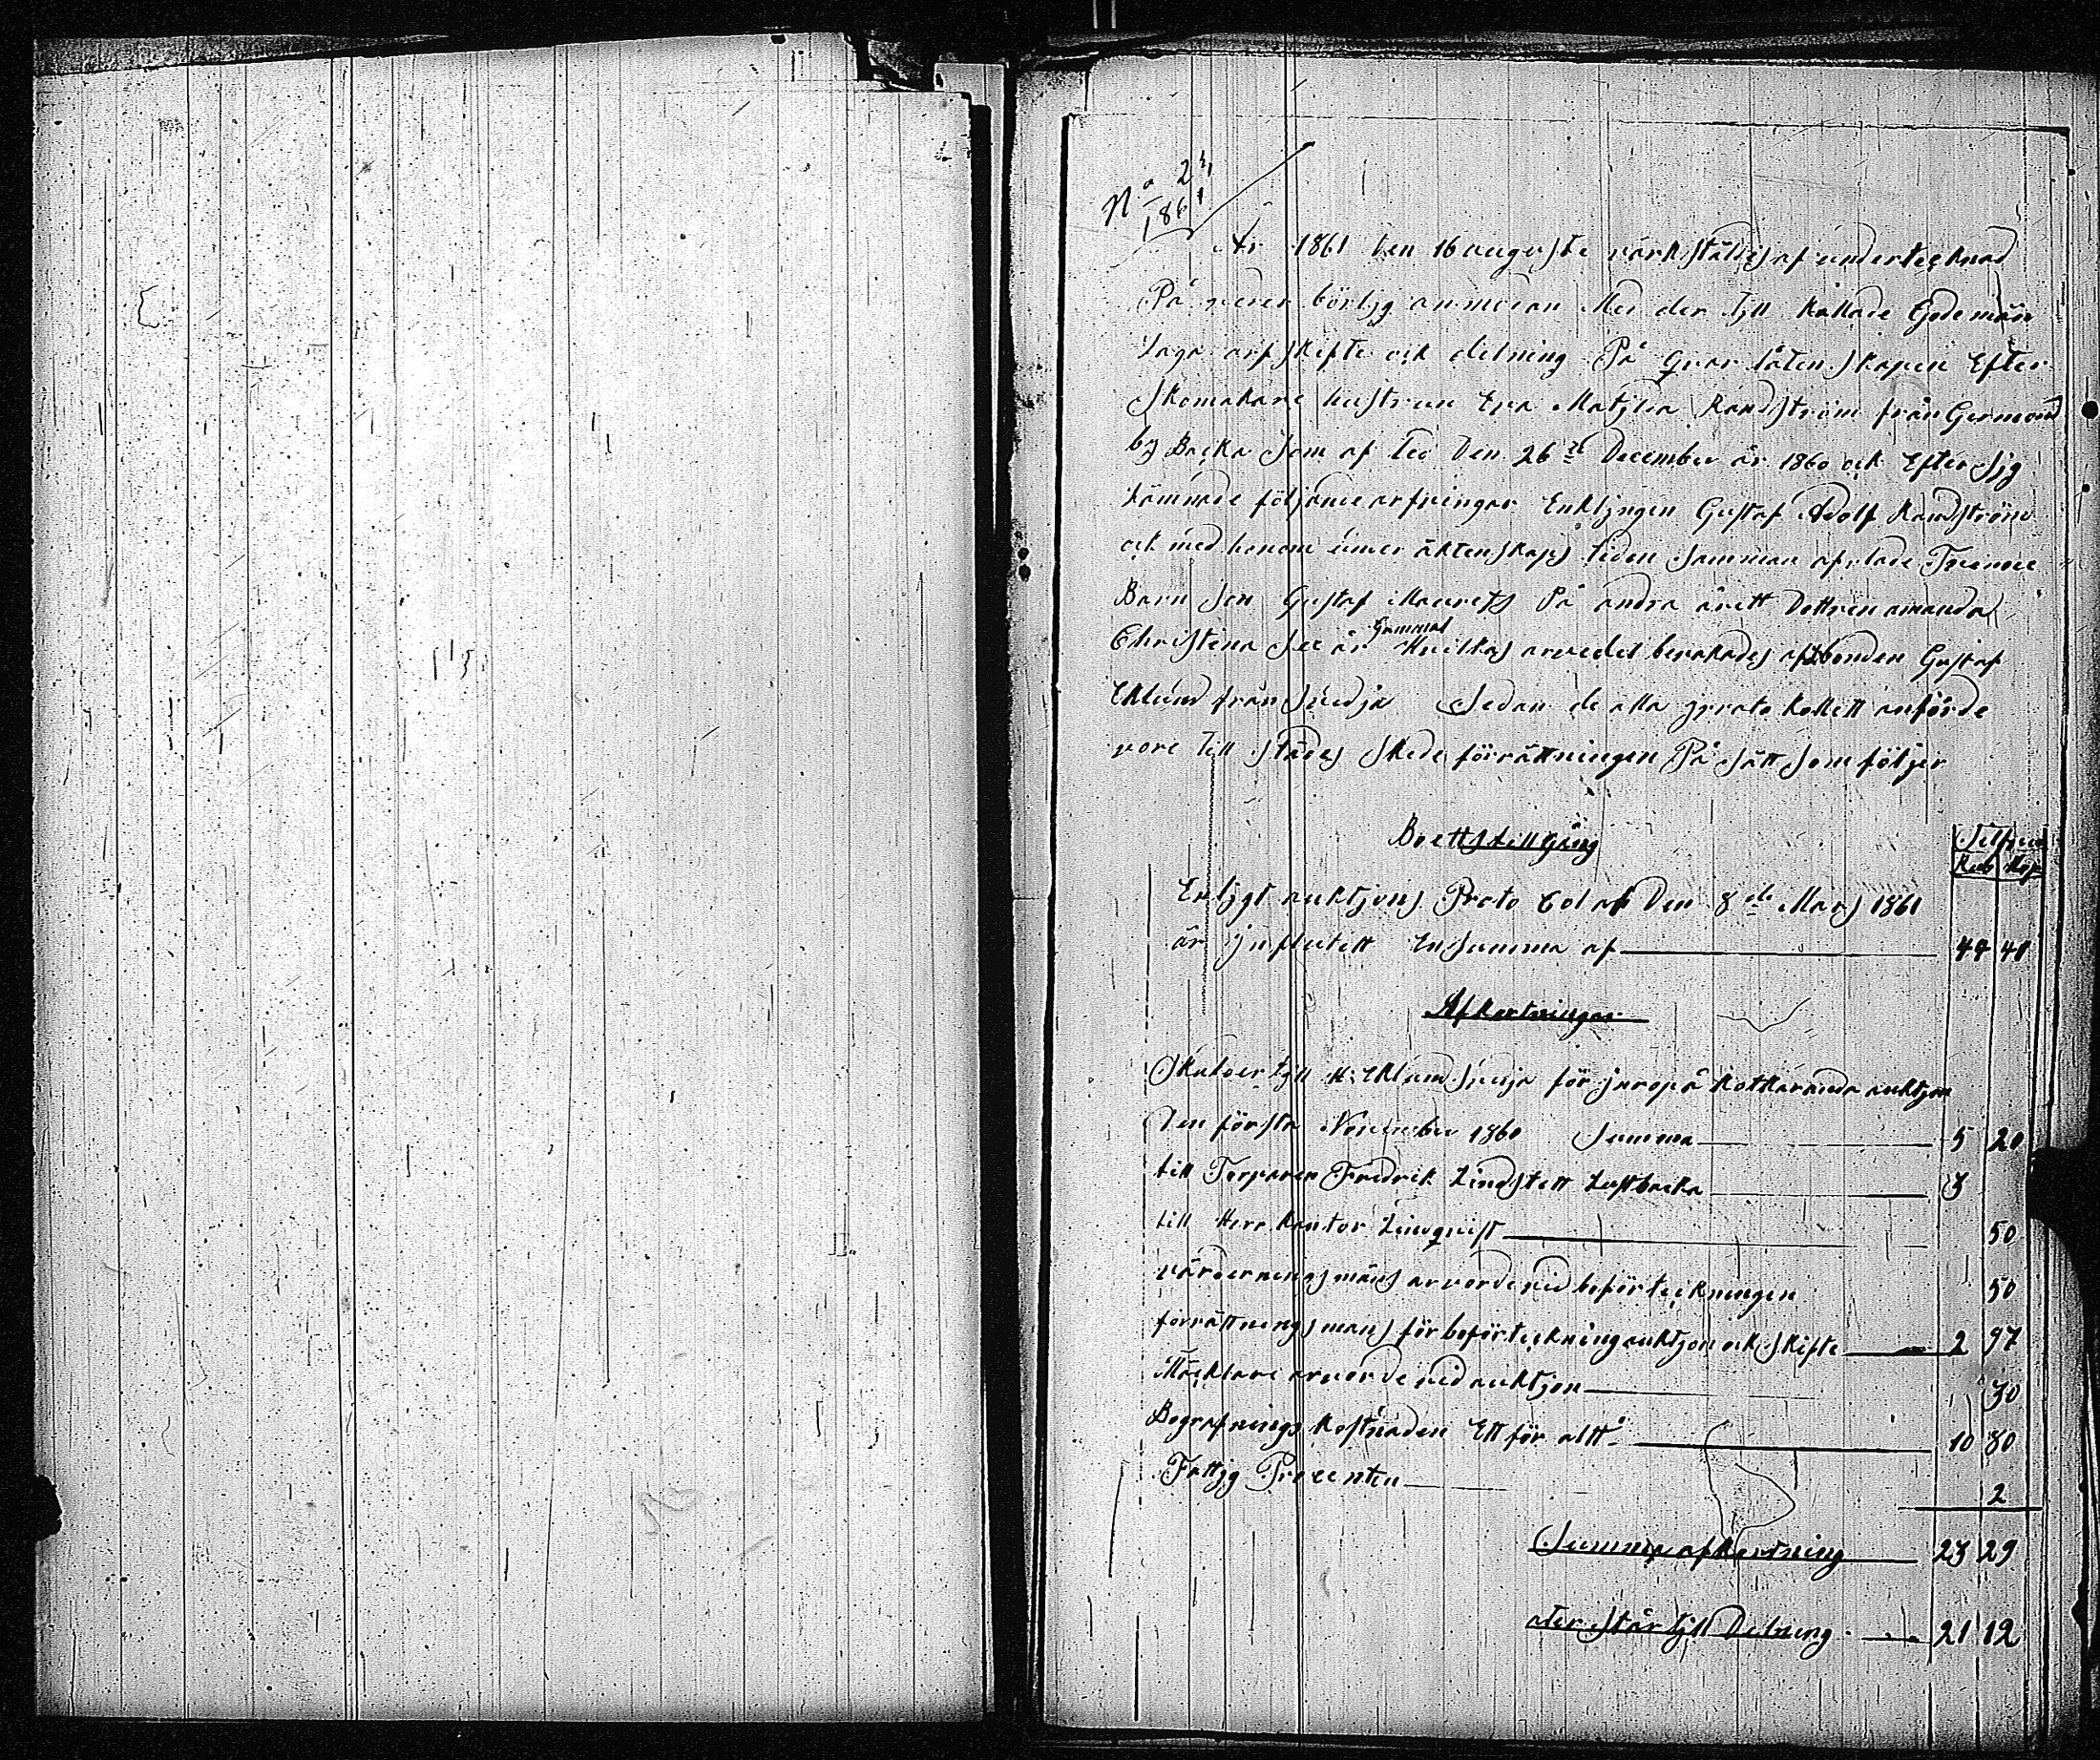 No 24
1861
År 1861 Den 16 auguste värkstäldes af undertecknad
På giever börlyg anmoan Med der tyll kallade Gode män
Laga arfskifte ock delning På qvar låtenskapen Efter
Skomakare hustrun Eva Matjlda Randström från Germund
by Backa som af led Den 26de December år 1860 ock Efter sjg
Lämnade följande arfvingar Enkljngen Gustaf Adolf Randström
ock med honom under äktenskaps tiden samman aflade Trenne
Barn son Gustaf Mauretz På andra årett Dottren amanda
Christena sex år Gammal Hvilkas arvedel bevakades af bonden Gustaf
Eklund från Smedja Sedan de alla j proto kollett anförde
vore till städes Skede förrättningen På sätt som följer
Boetts tillgång
Silfver
Rub Kop
Enljgt auktjons Proto Col af Den 8de Mars 1861
är jnflutett En summa af 44 40
Afkortningar
Skulder tyll H: Eklund Smeja för jnrop å Kotkaranda auktjon
Den första November 1860 Summa 5 20
till Torparen Fredrik Lindstett Lustbacka 3
till Herr Kantor Lindqvist 50
värdernings mäns arvorde vid boförteckningen 50
forrättnings mans för boförteckning auktjon ock skifte 2 97
Mäcklare arvorde vid auktjon 30
Begrafnings kostnaden Ett för altt 10 80
Fattjg Procenten 2
Summa afkortning 23 29
ater står tyll Delning 21 12